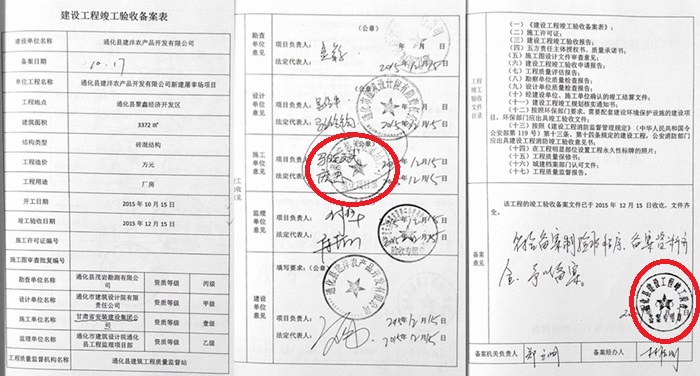 建设工程竣工验收备案表
建设单位名称 通化县建沣农产品开发有限公司
备案日期 10.17
单位工程名称 通化县建沣农产品开发有限公司新建屠宰场项目
工程地点 通化县聚鑫经济开发区
建筑面积 3372 ㎡
结构类型 砖混结构
工程造价 万元
工程用途 厂房
开工日期 2015 年 10 月 15 日
竣工验收日期 2015 年 12 月 15 日
施工许可证编号
施工图审查批复编号
勘查单位名称 通化县茂岩勘测有限公司 资质等级 丙级
设计单位名称 通化市建筑设计院有限责任公司 资质等级 甲级
施工单位名称 甘肃省安装建设集团公司 资质等级 壹级
监理单位名称 通化市建筑设计院通化县工程监理项目部 资质等级 乙级
工程质量监督机构名称 通化县建筑工程质量监督站
勘查单位意见
(公章)
项目负责人:
法定代表人: 2015年12月15日
设计单位意见
项目负责人:
法定代表人: 2015年12月15日
施工单位意见
(公章)
项目负责人: 2015年12月15日
法定代表人: 2015年12月15日
监理单位意见
项目负责人:
法定代表人:
验收专用章
建设单位意见
填写要求: (公章)
通化县建沣农产品开发有限公司
项目负责人:
法定代表人: 2015年12月15日
工程竣工验收文件目录
(一)《建设工程竣工验收备案表》;
(二)施工许可证;
(三)建设工程竣工验收报告;
(四)五方责任主体授权书、质量承诺书。
(五)施工图设计文件审查意见;
(六)建设工程竣工验收申请报告;
(七)工程质量评估报告;
(八)勘察单位质量检查报告;
(九)设计单位质量检查报告;
(十)经建设单位、施工单位确认的竣工结算文件;
(十一)建设工程竣工规划核实通知书;
(十二)按照环保部门要求,需要配套建设环境保护设施的建设项目,环保部门应当出具建设工程环保验收文件;
(十三)按照《建设工程消防监督管理规定》(中华人民共和国令公安部第 119 号)第三条、第十四条规定的建设工程,公安消防部门应出具建设工程消防验收意见书;
(十四)在工程明显部位设置工程永久性标牌的照片;
(十五)工程质量保修书;
(十六)城建档案部门认可文件;
(十七)工程质量监督报告。
备案意见
该工程的竣工验收备案文件已于 2015 年 12 月 15 日收讫,文件齐全。
符合备案制验收标准,备案资料齐全,予以备案。
通化县建设工程竣工验收备案专用章
备案机关负责人
备案经办人